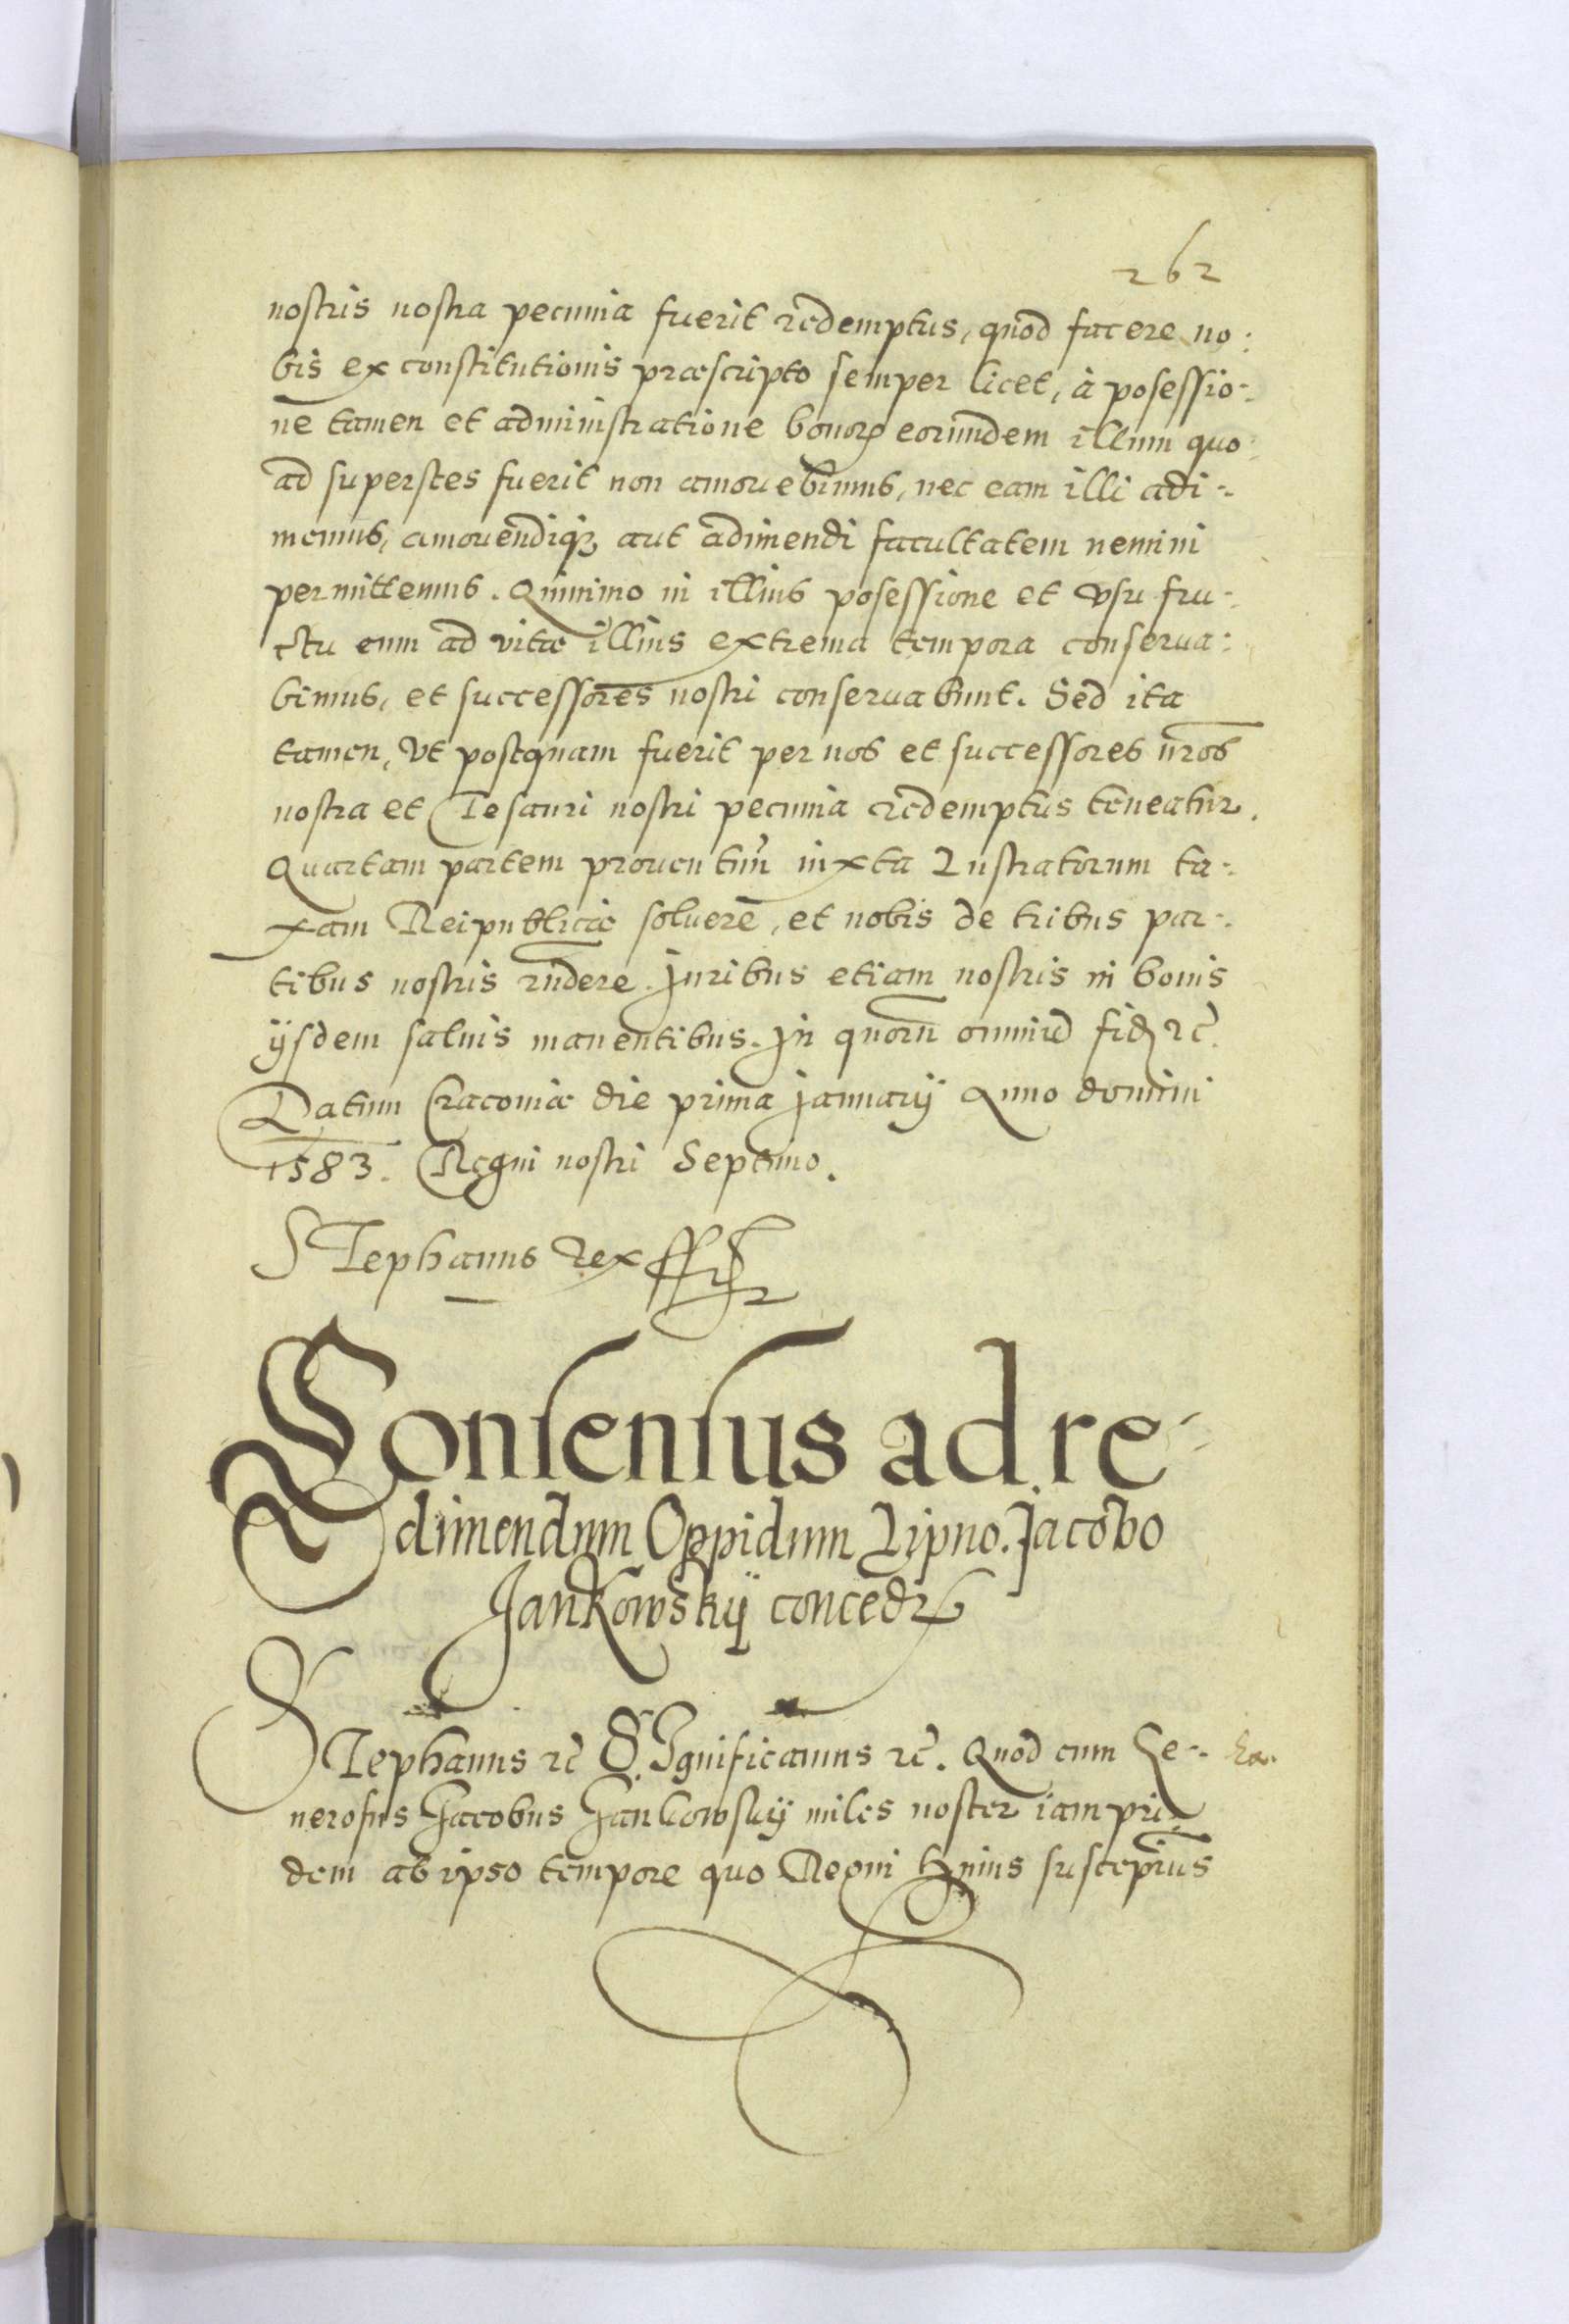 262
nostris nostra pecunia fuerit redemptus, quod facere no:
bis ex constitutionis præscripto semper licet, à posessio-
ne tamen et administratione bonorꝝ eorundem illum quo
ad superstes fuerit non amouebimus, nec eam illi adi-
memus, amouendiqꝫ aut adimendi facultatem nemini
permittemus. Quinimo in illius posessione et vsu fru-
ctu eum ad vitæ illius extrema tempora conserua:
bimus, et successores nostri conseruabunt. Sed ita
tamen, Vt postquam fuerit per nos et successores nr̄os
nostra et Tesauri nostri pecunia redemptus teneatur.
Quartam partem prouentuū iuxta Lustratorum ta-
xam Reipublicæ soluere, et nobis de tribus par-
tibus nostris rn̄dere. Juribus etiam nostris in bonis
ijsdem saluis manentibus. Jn quorū omniū fidē etc̄.
Datum Cracouiæ die prima January Anno domini
1583. Regni nostri Septimo.
STephanus Rex
Consensus ad re-
dimendum Oppidum Lipno. Jacobo
Jankowskÿ conceditur
STephanus etc̄ SJgnificamus etc̄. Quod cum Ge-
nerosus Jacobus Jankowskÿ miles noster iam pri-
dem ab ipso tempore quo Regni huius suscepimus